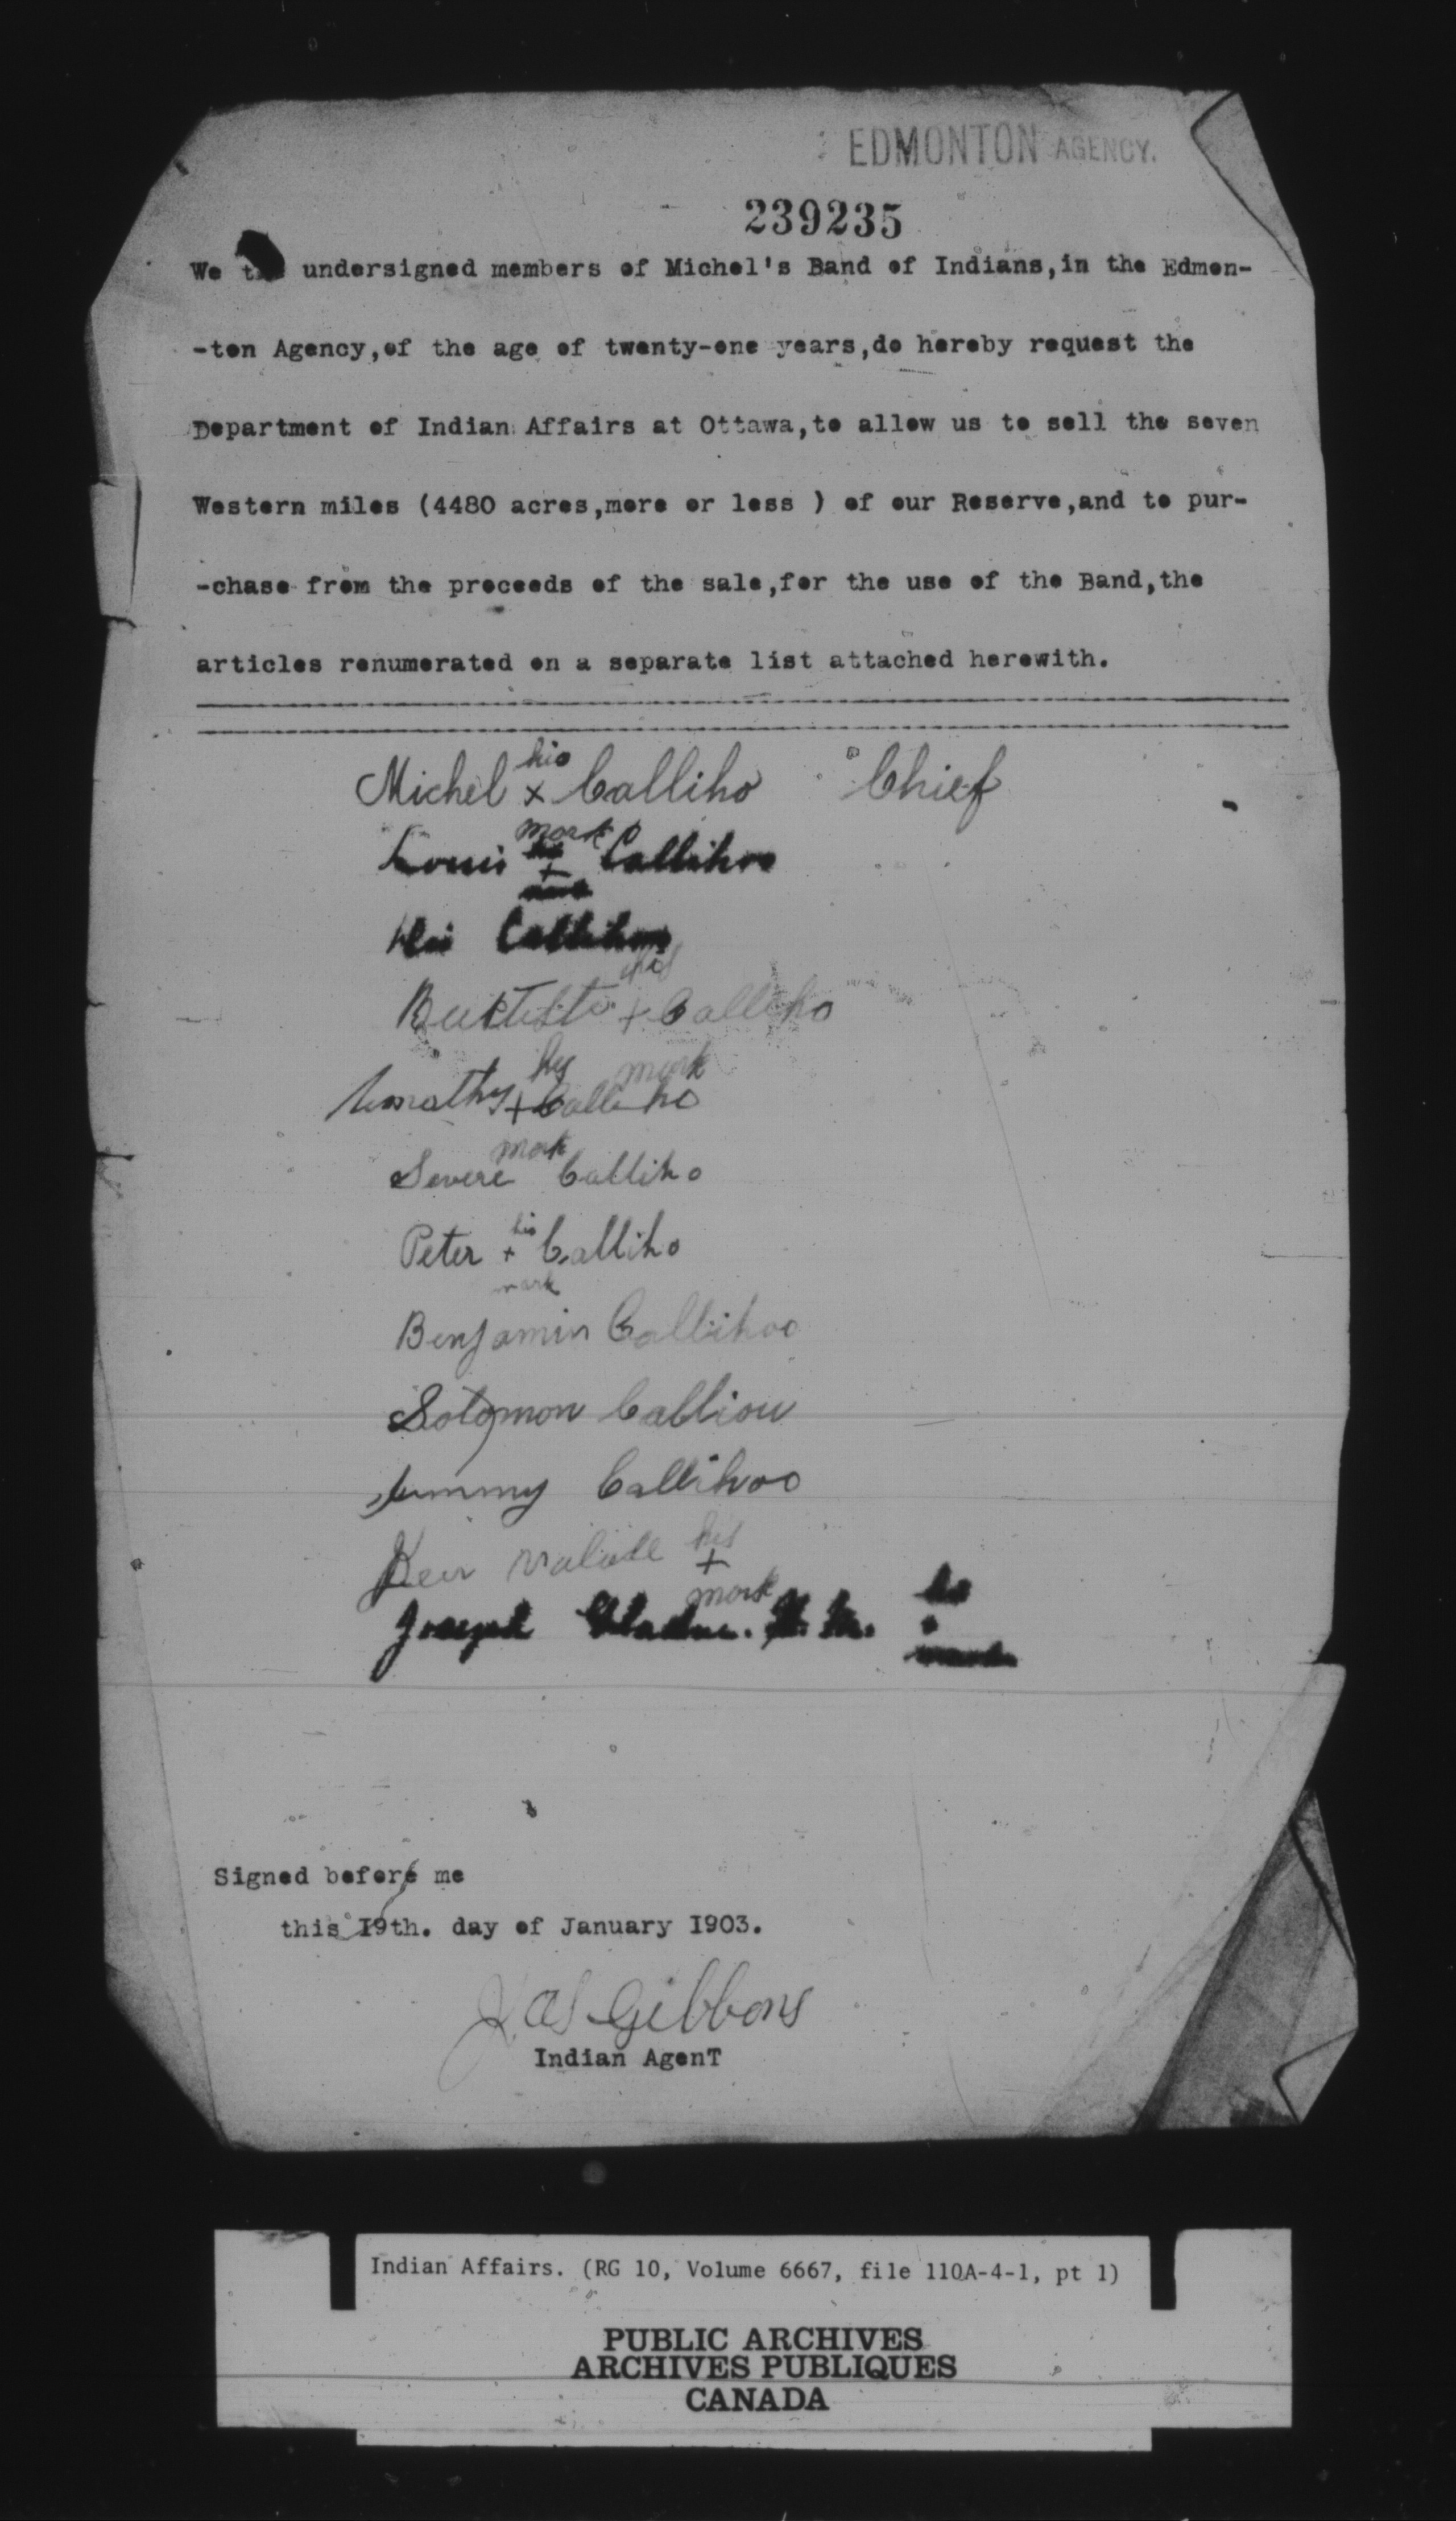 EDMONTON AGENCY.
239235
We the undersigned members of Michel's Band of Indians,in the Edmon-
-ton Agency,of the age of twenty-one years,do hereby request the
Department of Indian Affairs at Ottawa,to allow us to sell the seven
Western miles (4480 acres,more or less ) of our Reserve,and to pur-
-chase from the proceeds of the sale,for the use of the Band,the
articles renumerated on a separate list attached herewith.
his
Michel x Calliho Chief
mark
his
Louis + Callihoo
mark
Callihoo
his
+ Calliho
his mark
+ Calliho
mark
Severe Calliho
his
Peter + Calliho
mark
Benjamin Callihoo
Solomon Calliou
Callihoo
his
+
mark
his
Joseph Gladue. H. M. x
mark
Signed before me
this I9th. day of January I903.
Jas Gibbons
Indian AgenT
Indian Affairs. (RG 10, Volume 6667, file 110A-4-1, pt 1)
PUBLIC ARCHIVES
ARCHIVES PUBLIQUES
CANADA